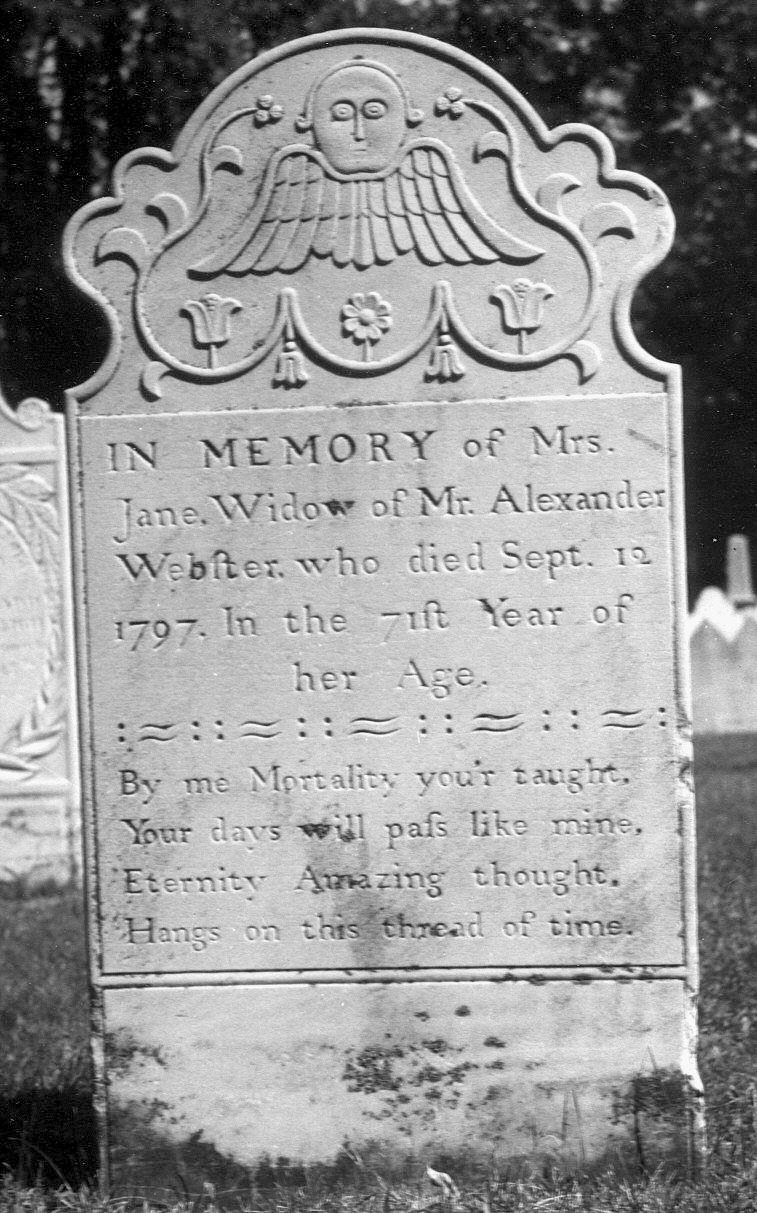 IN MEMORY of Mrs.
Jane. Widow of Mr. Alexander
Webſter. who died Sept. 12
1797. In the 71ſt Year of
her Age.
By me Mortality you'r taught.
Your days will paſs like mine.
Eternity Amazing thought.
Hangs on this thread of time.